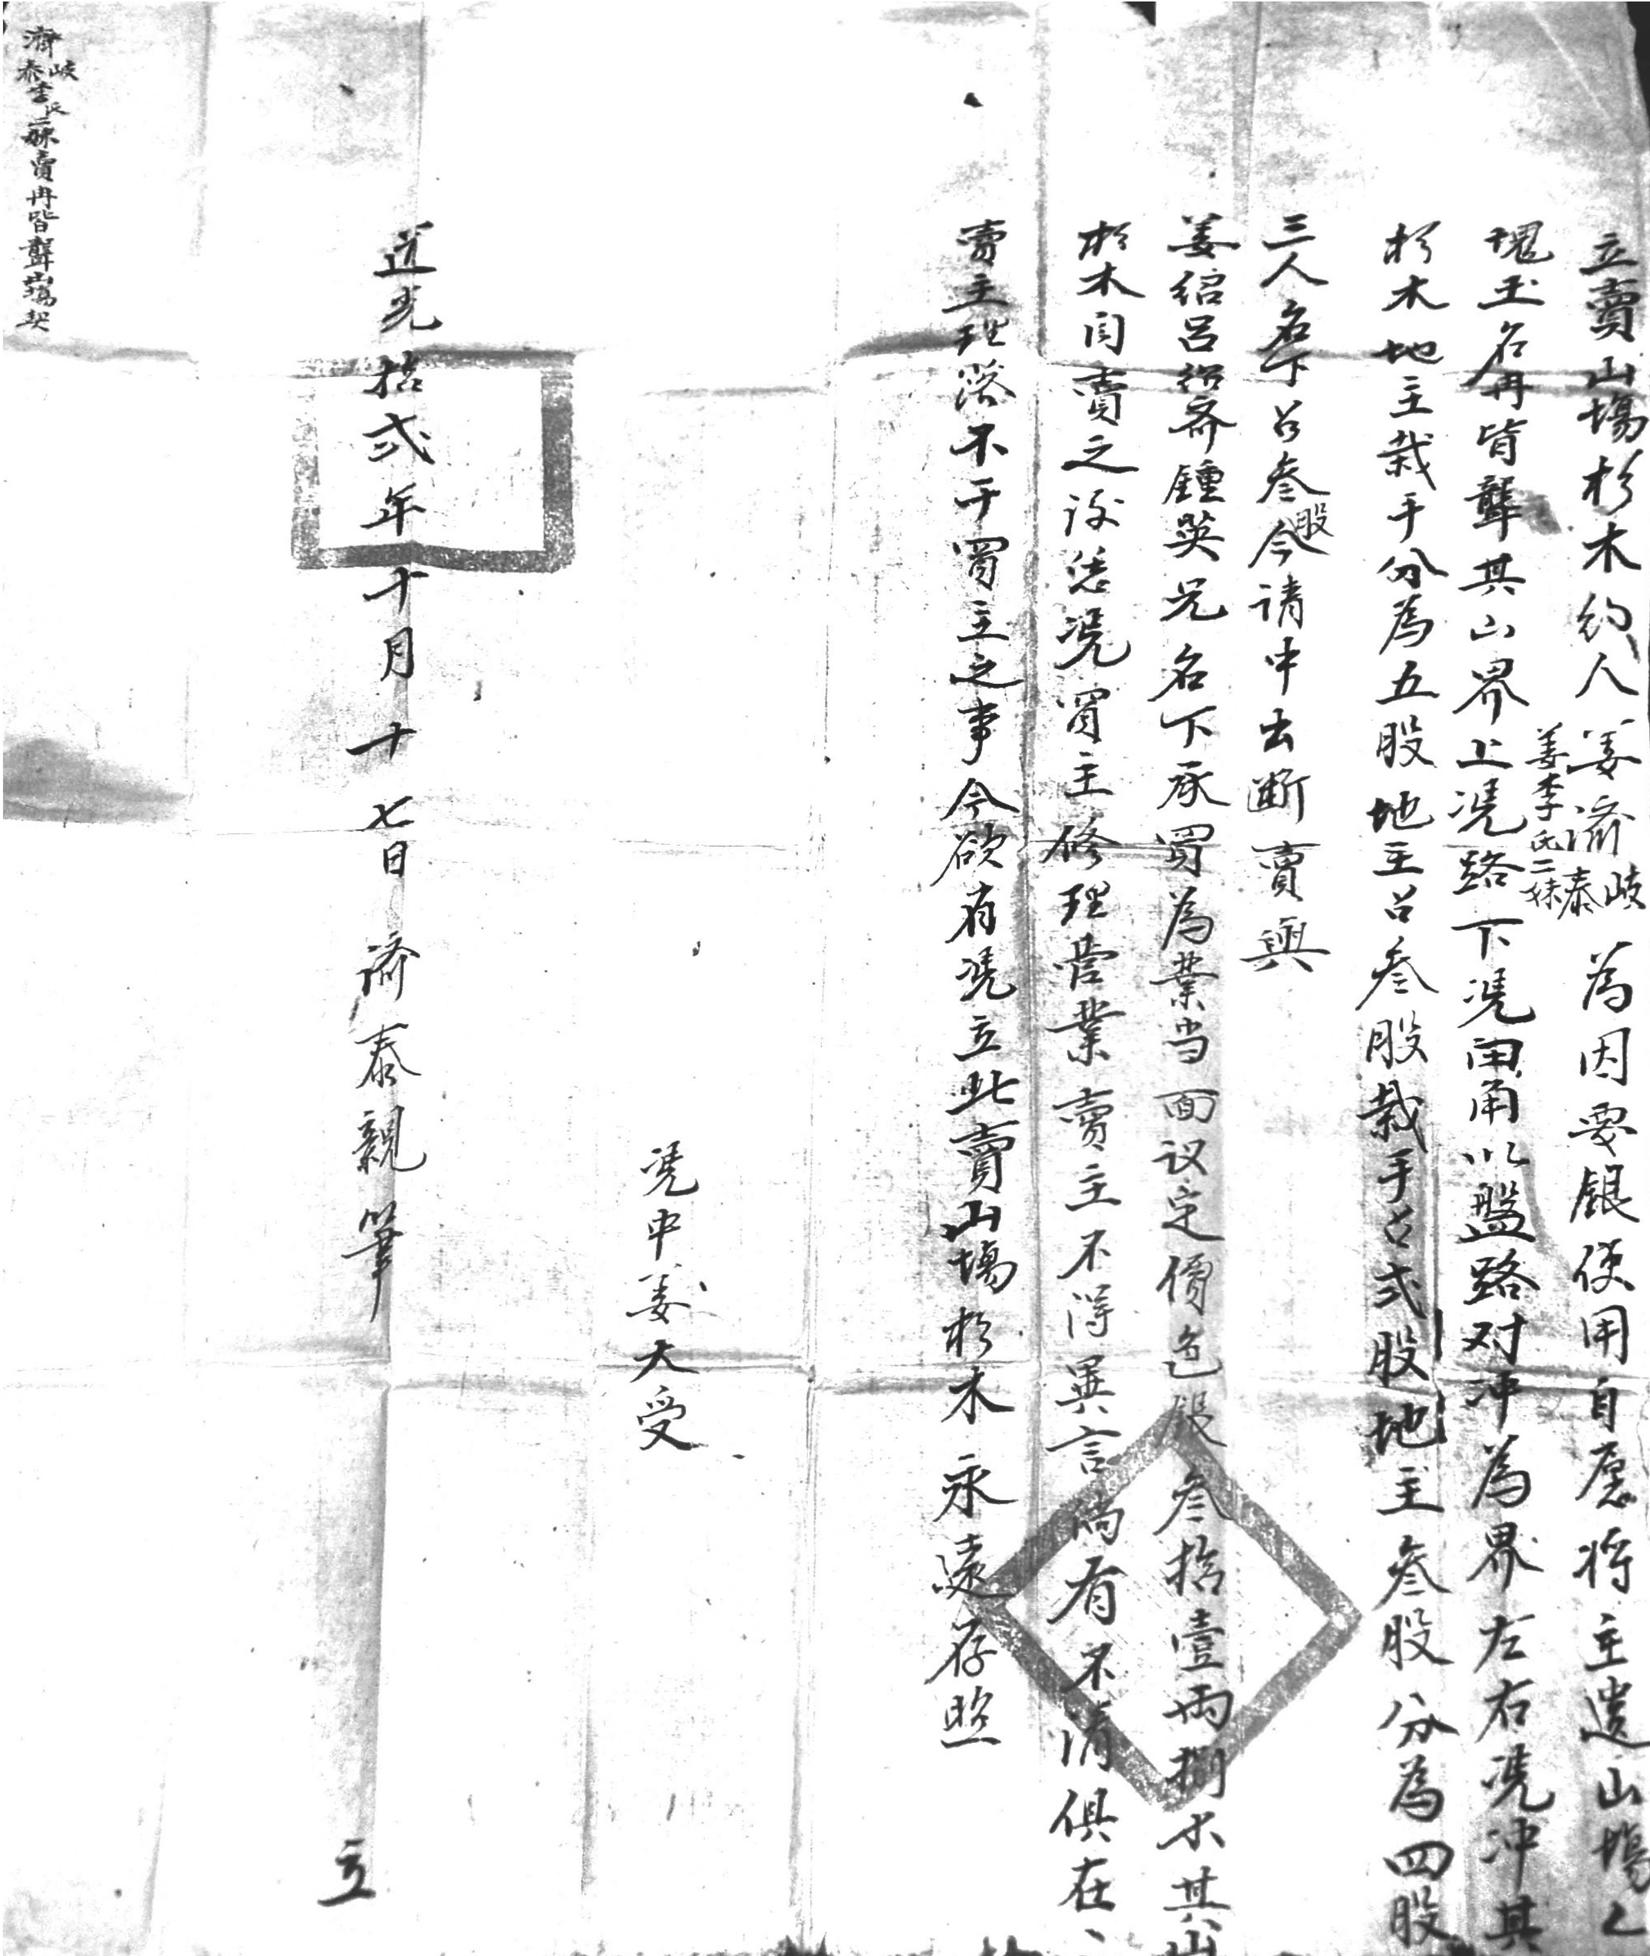 立賣山塲杉木約人姜濟岐泰姜李氏二妹為因要銀使用自愿将主遗山塲乙
塊土名冉皆聾其山界上凴路下凴田角以盤路对冲為界左右凴冲其
杉木地主栽手分為五股地主占叁股栽手占弍股地主叁股分為四股
三人名下占叁股今请中出断賣與
姜紹呂紹齋鍾英兄名下承買為業当面议定價色銀叁拾壹兩捌木其山
杉木自賣之後恁凴買主修理营業賣主不得異言倘有不清俱在
賣主理落不干買主之事今欲有凴立此賣山塲杉木永遠存照
凴中姜大受
道光拾弍年十月十七日濟泰親筆立
濟岐泰李氏二妹賣冉皆聾山塲契